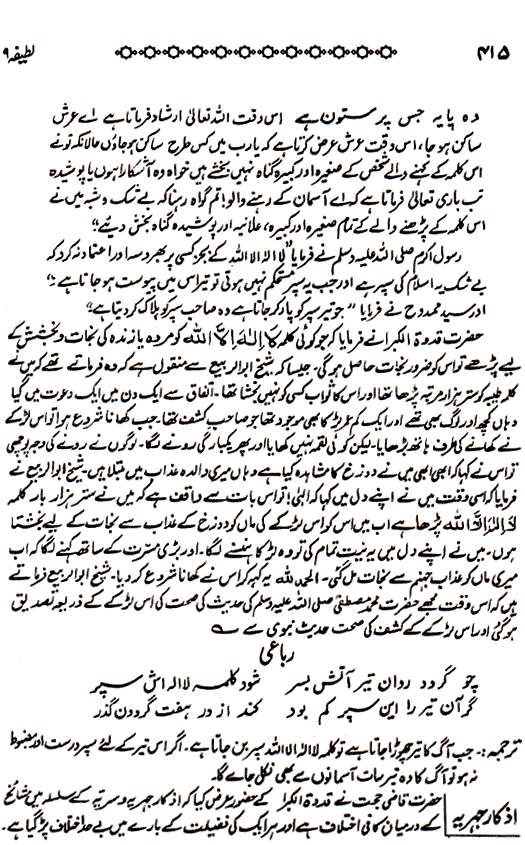 ۴۱۵ لطیفہ ۹
وہ پایہ جس پر ستون ہے اس وقت اللہ تعالیٰ ارشاد فرماتا ہے اے عرش
ساکن ہو جا، اس وقت عرش عرض کرتا ہے کہ یارب میں کس طرح ساکن ہو جاؤں حالانکہ تو نے
اس کلمہ کے کہنے والے شخص کے صغیرہ اور کبیرہ گناہ نہیں بخشے ہیں خواہ وہ آشکارا ہوں یا پوشیدہ
تب باری تعالیٰ فرماتا ہے کہ اے آسمان کے رہنے والو! تم گواہ رہنا کہ بے شک و شبہ میں نے
اس کلمہ کے پڑھنے والے کے تمام صغیرہ اور کبیرہ، علانیہ اور پوشیدہ گناہ بخش دیئے"
رسول اکرم صلی اللہ علیہ وسلم نے فرمایا "لا الہ الا اللہ کے بجز کسی پر بھروسہ اور اعتماد نہ کرو کہ
بے شک یہ اسلام کی سپر ہے اور جب یہ سپر مستحکم نہیں ہوتی تو تیر اس میں پیوست ہو جاتا ہے"
اور سید ممدوح نے فرمایا "جو تیر سپر کو پار کر جاتا ہے وہ صاحب سپر کو ہلاک کر دیتا ہے"
حضرت قدوۃ الکبرا نے فرمایا کہ جو کوئی کلمہ لَا اِلٰہَ اِلَّا اللہ کو مردہ یا زندہ کی نجات و بخشش کے
لیے پڑھے تو اس کو ضرور نجات حاصل ہو گی۔ جیسا کہ شیخ ابو الربیع سے منقول ہے کہ وہ فرماتے تھے کہ میں نے
کلمہ طیبہ کو ستر ہزار مرتبہ پڑھا تھا اور اس کا ثواب کسی کو نہیں بخشا تھا۔ اتفاق سے ایک دن میں ایک دعوت میں گیا
وہاں کچھ اور لوگ بھی تھے اور ایک کم عمر لڑکا بھی موجود تھا جو صاحب کشف تھا۔ جب کھانا شروع ہوا تو اس لڑکے
نے کھانے کی طرف ہاتھ بڑھایا۔ لیکن کوئی لقمہ نہیں کھایا اور پھر یکبارگی رونے لگا۔ لوگوں نے رونے کی وجہ پوچھی
تو اس نے کہا کہ ابھی ابھی میں نے دوزخ کا مشاہدہ کیا ہے وہاں میری والدہ عذاب میں مبتلا ہیں۔ شیخ ابو الربیع نے
فرمایا کہ اسی وقت میں نے اپنے دل میں کہا کہ الٰہی! تو اس بات سے واقف ہے کہ میں نے ستر ہزار بار کلمہ
لَا اِلٰہَ اِلَّا اللہ پڑھا ہے اب میں اس کو اس لڑکے کی ماں کو دوزخ کے عذاب سے نجات کے لیے بخشتا
ہوں۔ میں نے اپنے دل میں یہ نیت تمام کی تو وہ لڑکا ہنسنے لگا۔ اور بڑی مسرت کے ساتھ کہنے لگا کہ اب
میری ماں کو عذاب جہنم سے نجات مل گئی۔ الحمد للہ یہ کہہ کر اس نے کھانا شروع کر دیا۔ شیخ ابو الربیع فرماتے
ہیں کہ اس وقت مجھے حضرت محمد مصطفیٰ صلی اللہ علیہ وسلم کی حدیث کی صحت کی اس لڑکے کے ذریعہ تصدیق
ہو گئی اور اس لڑکے کے کشف کی صحت حدیث نبوی سے
رباعی
چو گردد رواں تیر آتش بسر شود کلمہ لا الہ اش سپر
گر آن تیر را این سپر کم بود کند از در ہفت گردون گذر
ترجمہ:۔ جب آگ کا تیر چھوڑا جاتا ہے تو کلمہ لا الہ الا اللہ سپر بن جاتا ہے۔ اگر اس تیر کے لئے سپر درست اور مضبوط
نہ ہو تو آگ کا وہ تیر سات آسمانوں سے بھی نکل جائے گا۔
اذکار جہریہ حضرت قاضی حجت نے قدوۃ الکبرا کے حضور عرض کیا کہ اذکار جہریہ و سریہ کے سلسلہ میں مشائخ
کے درمیان کافی اختلاف ہے اور ہر ایک کی فضیلت کے بارے میں بے حد اختلاف پڑ گیا ہے۔